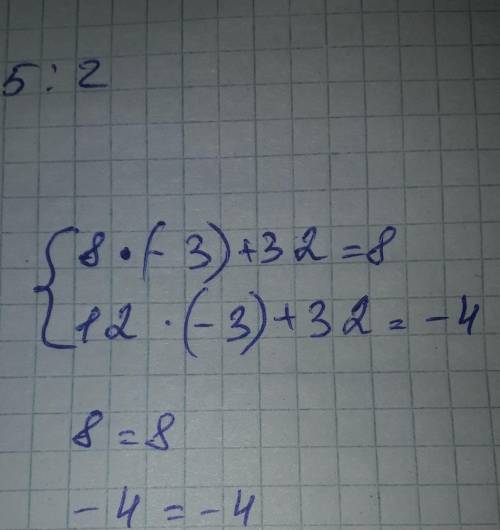 5 : 2
8 · (- 3) + 32 = 8
12 · (- 3) + 32 = - 4
8 = 8
- 4 = - 4